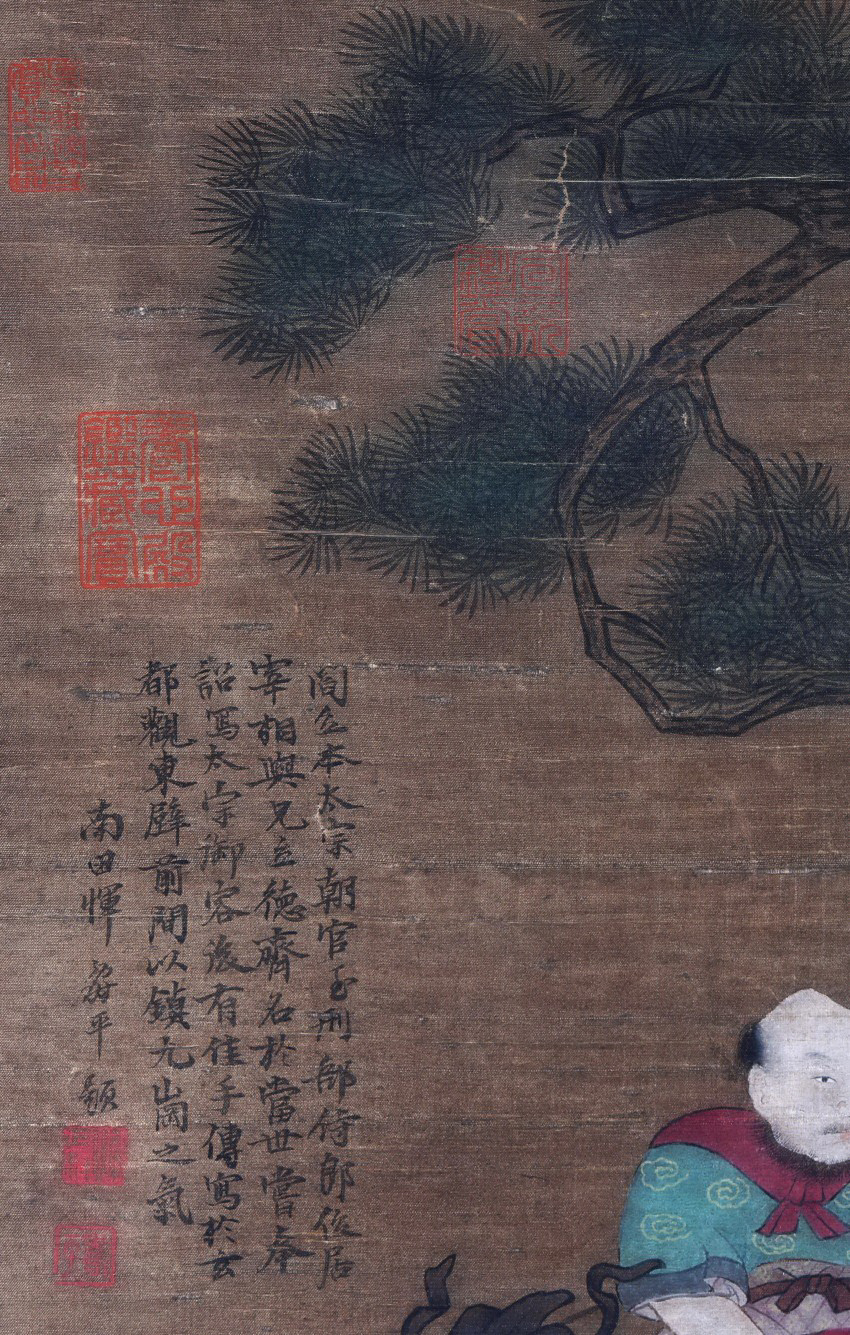 閻立本太宗朝官至刑部侍郎後居
宰相與兄立德齊名於當世嘗奉
詔寫太宗御容後有佳手傳寫於玄
都觀東壁前間以鎮九崗之氣
南田惲壽平題
壽北殿
鑑藏寶